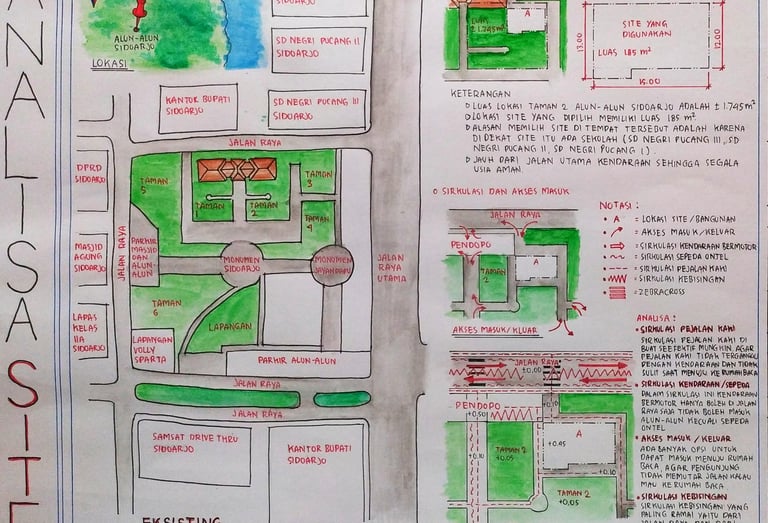 ANALISA SITE
ALUN-ALUN
SIDOARJO
LOKASI
SD NEGRI PUCANG II
SIDOARJO
KANTOR BUPATI
SIDOARJO
SD NEGRI PUCANG III
SIDOARJO
JALAN RAYA
DPRD
SIDOARJO
TAMAN
5
TAMAN
1
TAMAN
2
TAMAN
3
TAMAN
4
JALAN RAYA
MASJID
AGUNG
SIDOARJO
PARKIR
MASJID
DAN
ALUN-
ALUN
MONUMEN
SIDOARJO
MONUMEN
JAYANDARU
JALAN
RAYA
UTAMA
TAMAN
6
LAPAS
KELAS
IIA
SIDOARJO
LAPANGAN
LAPANGAN
VOLLY
SPARTA
PARKIR ALUN-ALUN
JALAN RAYA
JALAN RAYA
SAMSAT DRIVE THRU
SIDOARJO
KANTOR BUPATI
SIDOARJO
EKSISTING
LUAS
± 1.745 m²
A
SITE YANG
DIGUNAKAN
LUAS 185 m²
13.00
12.00
15.00
KETERANGAN
LUAS LOKASI TAMAN 2 ALUN-ALUN SIDOARJO ADALAH ± 1.745 m²
LOKASI SITE YANG DIPILIH MEMILIKI LUAS 185 m²
ALASAN MEMILIH SITE DI TEMPAT TERSEBUT ADALAH KARENA
DI DEKAT SITE ITU ADA SEKOLAH (SD NEGRI PUCANG III, SD
NEGRI PUCANG II, SD NEGRI PUCANG I.)
JAUH DARI JALAN UTAMA KENDARAAN SEHINGGA SEGALA
USIA AMAN.
SIRKULASI DAN AKSES MASUK
JALAN RAYA
PENDOPO
TAMAN
2
A
AKSES MASUK/KLUAR
NOTASI :
A = LOKASI SITE/BANGUNAN
= AKSES MASUK/KELUAR
= SIRKULASI KENDARAAN BERMOTOR
= SIRKULASI SEPEDA ONTEL
= SIRKULASI PEJALAN KAKI
= SIRKULASI KEBISINGAN
= ZEBRACROSS
ANALISA :
SIRKULASI PEJALAN KAKI
SIRKULASI PEJALAN KAKI DI
BUAT SEEFEKTIF MUNGKIN, AGAR
PEJALAN KAKI TIDAK TERGANGGU
DENGAN KENDARAAN DAN TIDAK
SULIT SAAT MENUJU KE RUMAH BACA
SIRKULASI KENDARAAN/SEPEDA
DALAM SIRKULASI INI KENDARAAN
BERMOTOR HANYA BOLEH DI JALAN
RAYA SAJA TIDAK BOLEH MASUK
ALUN-ALUN KECUALI SEPEDA
ONTEL
AKSES MASUK / KELUAR
ADA BANYAK OPSI UNTUK
DAPAT MASUK MENUJU RUMAH
BACA, AGAR PENGUNJUNG
TIDAK MEMUTAR JALAN KALAU
MAU KE RUMAH BACA
SIRKULASI KEBISINGAN
SIRKULASI KEBISINGAN YANG
PALING RAMAI YAITU DARI
JALAN RAYA
±0.00
PENDOPO
+0.50
TAMAN 2
+0.05
A
+0.45
+0.10
+0.10
TAMAN 2
+0.05